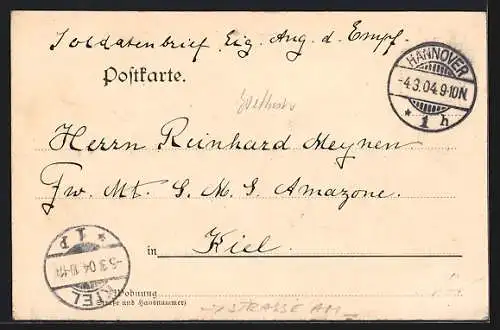 Soldatenbrief Eig. Ang. d. Empf.
Postkarte.
HANNOVER
-4.3.04.9-10N.
* 1 h
Herrn Reinhard Meynen
Fw. Mt. S. M. S. Amazone.
in Kiel.
KIEL
-5.3.04.
* 1 P
Wohnung
(Straße und Hausnummer)
STRASSE AM